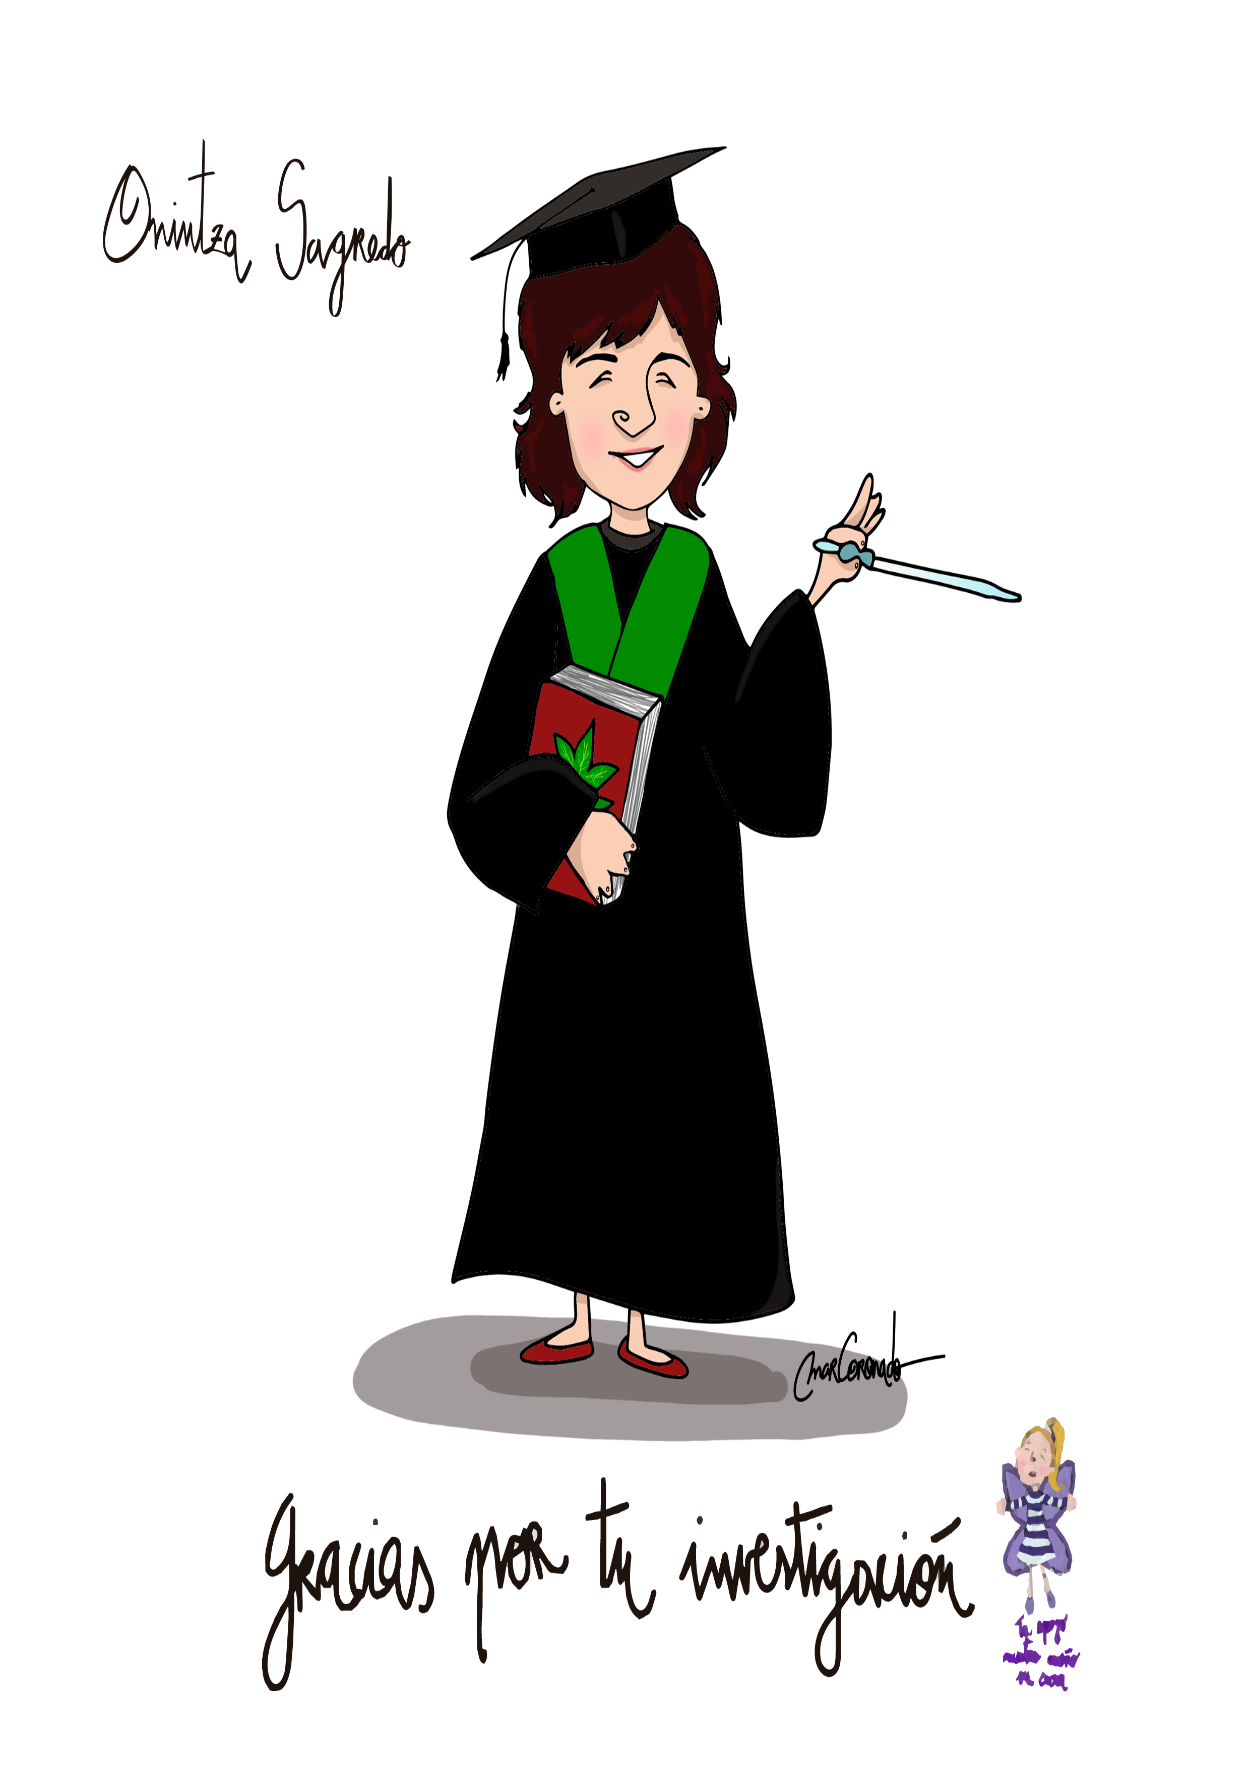 Onintza Sagredo
MarCoronado
Gracias por tu investigación